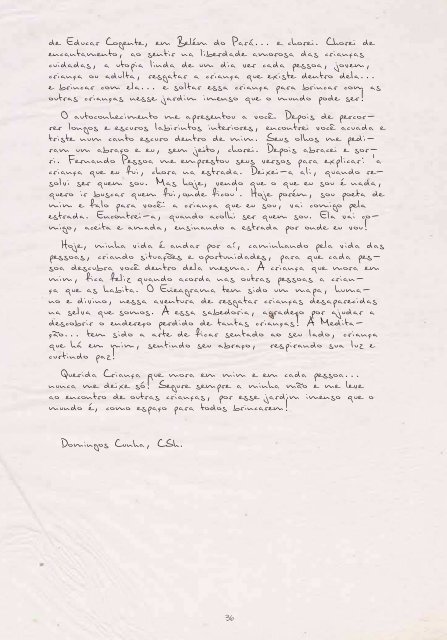 de Educar Cogente, em Belém do Pará... e chorei. Chorei de
encantamento, ao sentir na liberdade amorosa das crianças
cuidadas, a utopia linda de um dia ver cada pessoa, jovem,
criança ou adulta, resgatar a criança que existe dentro dela...
e brincar com ela... e soltar essa criança para brincar com as
outras crianças nesse jardim imenso que o mundo pode ser!
O autoconhecimento me apresentou a você. Depois de percor-
rer longos e escuros labirintos interiores, encontrei você acuada e
triste num canto escuro dentro de mim. Seus olhos me pedi-
ram um abraço e eu, sem jeito, chorei. Depois abracei e sor-
ri. Fernando Pessoa me emprestou seus versos para explicar: 'a
criança que eu fui, chora na estrada. Deixei-a ali, quando re-
solvi ser quem sou. Mas hoje, vendo que o que eu sou é nada,
quero ir buscar quem fui, onde ficou'. Hoje porém, sou poeta de
mim e falo para você: a criança que eu sou, vai comigo pela
estrada. Encontrei-a, quando acolhi ser quem sou. Ela vai co-
migo, aceita e amada, ensinando a estrada por onde eu vou!
Hoje, minha vida é andar por aí, caminhando pela vida das
pessoas, criando situações e oportunidades, para que cada pes-
soa descubra você dentro dela mesma. A criança que mora em
mim, fica feliz quando acorda nas outras pessoas a crian-
ça que as habita. O Eneagrama tem sido um mapa, huma-
no e divino, nessa aventura de resgatar crianças desaparecidas
na selva que somos. A essa sabedoria, agradeço por ajudar a
descobrir o endereço perdido de tantas crianças! A Medita-
ção... tem sido a arte de ficar sentado ao seu lado, criança
que há em mim, sentindo seu abraço, respirando sua luz e
curtindo paz!
Querida Criança que mora em mim e em cada pessoa...
nunca me deixe só! Segure sempre a minha mão e me leve
ao encontro de outras crianças, por esse jardim imenso que o
mundo é, como espaço para todos brincarem!
Domingos Cunha, CSh.
36